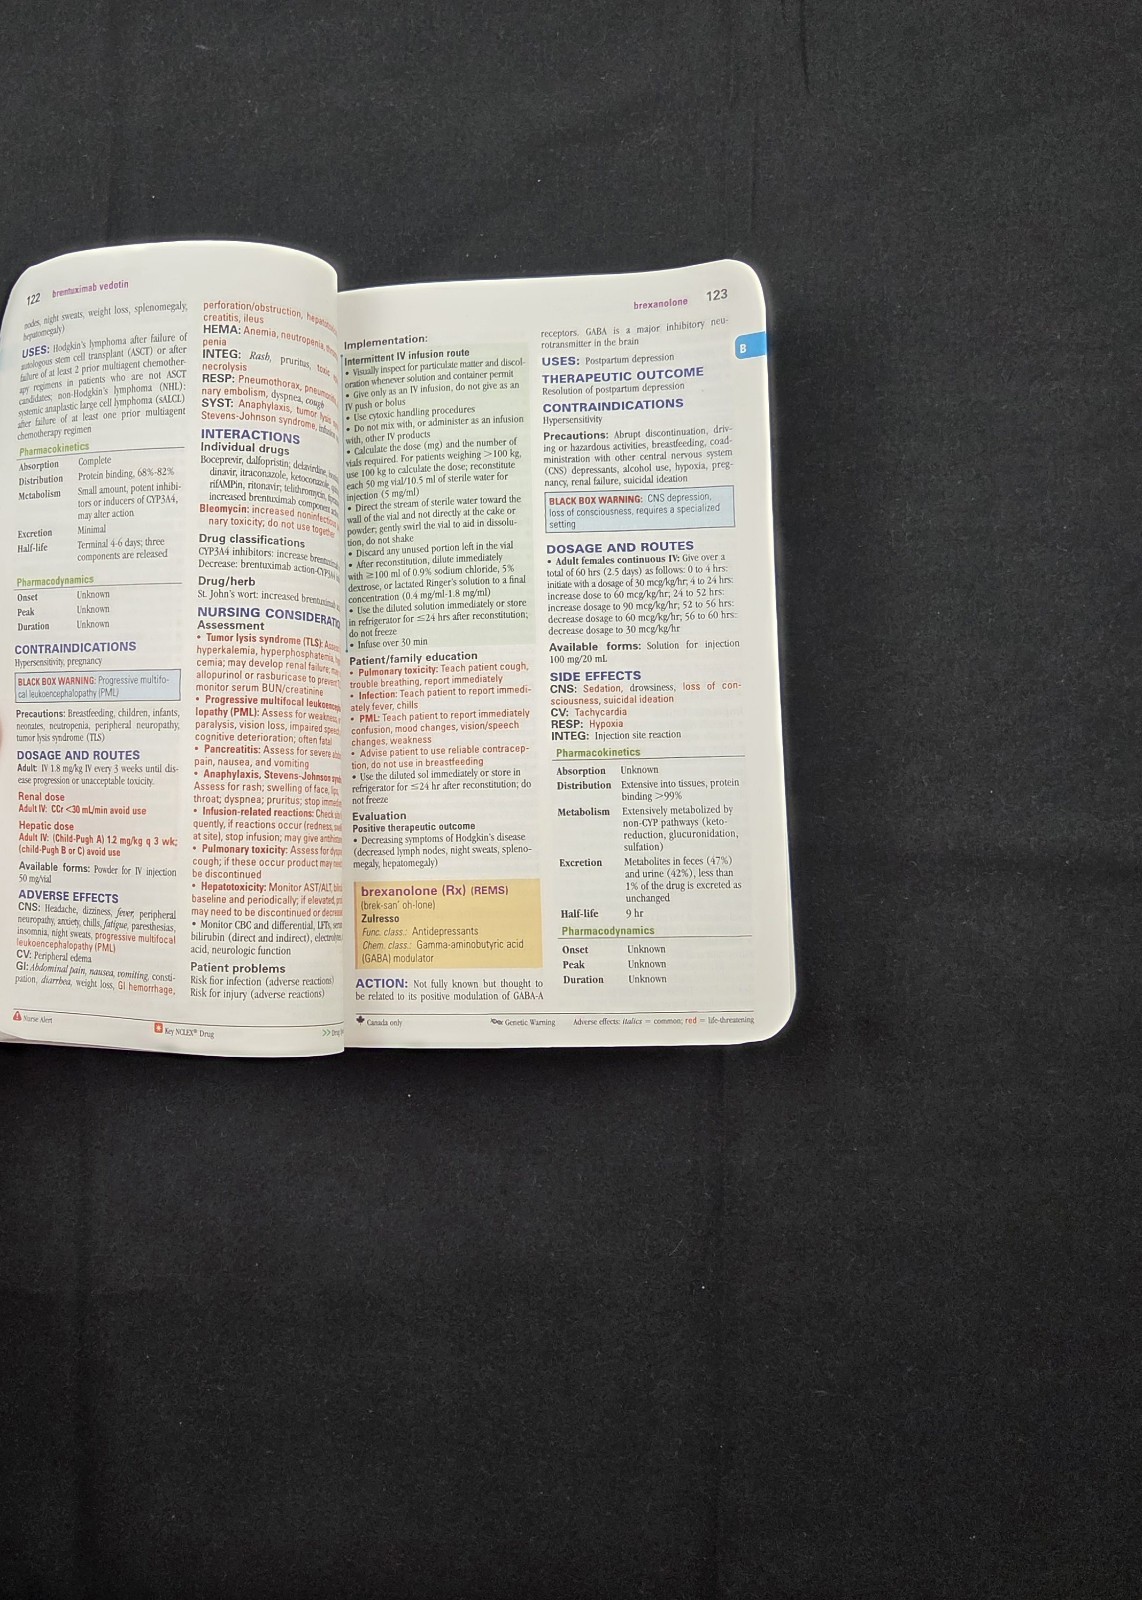 122 brentuximab vedotin
nodes, night sweats, weight loss, splenomegaly,
hepatomegaly)
USES: Hodgkin's lymphoma after failure of
autologous stem cell transplant (ASCT) or after
failure of at least 2 prior multiagent chemother-
apy regimens in patients who are not ASCT
candidates; non-Hodgkin's lymphoma (NHL):
systemic anaplastic large cell lymphoma (sALCL)
after failure of at least one prior multiagent
chemotherapy regimen
Pharmacokinetics
Absorption Complete
Distribution Protein binding, 68%-82%
Metabolism Small amount, potent inhibi-
tors or inducers of CYP3A4,
may alter action
Excretion Minimal
Half-life Terminal 4-6 days; three
components are released
Pharmacodynamics
Onset Unknown
Peak Unknown
Duration Unknown
CONTRAINDICATIONS
Hypersensitivity, pregnancy
BLACK BOX WARNING: Progressive multifo-
cal leukoencephalopathy (PML)
Precautions: Breastfeeding, children, infants,
neonates, neutropenia, peripheral neuropathy,
tumor lysis syndrome (TLS)
DOSAGE AND ROUTES
Adult: IV 1.8 mg/kg IV every 3 weeks until dis-
ease progression or unacceptable toxicity.
Renal dose
Adult IV: CCr <30 mL/min avoid use
Hepatic dose
Adult IV: (Child-Pugh A) 1.2 mg/kg q 3 wk;
(child-Pugh B or C) avoid use
Available forms: Powder for IV injection
50 mg/vial
ADVERSE EFFECTS
CNS: Headache, dizziness, fever, peripheral
neuropathy, anxiety, chills, fatigue, paresthesias,
insomnia, night sweats, progressive multifocal
leukoencephalopathy (PML)
CV: Peripheral edema
GI: Abdominal pain, nausea, vomiting, consti-
pation, diarrhea, weight loss, GI hemorrhage,
perforation/obstruction,
creatitis, ileus
HEMA: Anemia, neutropenia,
penia
INTEG: Rash, pruritus, toxic
necrolysis
RESP: Pneumothorax,
nary embolism, dyspnea, cough
SYST: Anaphylaxis, tumor lysis
Stevens-Johnson syndrome,
INTERACTIONS
Individual drugs
Boceprevir, dalfopristin, delavirdine,
dinavir, itraconazole, ketoconazole,
rifAMPin, ritonavir; telithromycin,
increased brentuximab component
Bleomycin: increased noninfectious
nary toxicity; do not use together
Drug classifications
CYP3A4 inhibitors: increase
Decrease: brentuximab action-CYP3A4
Drug/herb
St. John's wort: increased
NURSING
Assessment
• Tumor lysis syndrome (TLS):
hyperkalemia, hyperphosphatemia,
cemia; may develop renal failure;
allopurinol or rasburicase to prevent
monitor serum BUN/creatinine
• Progressive multifocal
lopathy (PML): Assess for weakness,
paralysis, vision loss, impaired
cognitive deterioration; often fatal
• Pancreatitis: Assess for severe
pain, nausea, and vomiting
• Anaphylaxis, Stevens-Johnson
Assess for rash; swelling of face, lips,
throat; dyspnea; pruritus; stop
• Infusion-related reactions: Check
quently, if reactions occur (redness,
at site), stop infusion; may give
• Pulmonary toxicity: Assess for
cough; if these occur product may
be discontinued
• Hepatotoxicity: Monitor AST/ALT,
baseline and periodically; if elevated,
may need to be discontinued or
• Monitor CBC and differential, LFTs,
bilirubin (direct and indirect),
acid, neurologic function
Patient problems
Risk fior infection (adverse reaction)
Risk for injury (adverse reactions)
Nurse Alert Key NCLEX® Drug
brexanolone 123
B
Implementation:
Intermittent IV infusion route
• Visually inspect for particulate matter and discol-
oration whenever solution and container permit
• Give only as an IV infusion, do not give as an
IV push or bolus
• Use cytoxic handling procedures
• Do not mix with, or administer as an infusion
with, other IV products
• Calculate the dose (mg) and the number of
vials required. For patients weighing >100 kg,
use 100 kg to calculate the dose; reconstitute
each 50 mg vial/10.5 ml of sterile water for
injection (5 mg/ml)
• Direct the stream of sterile water toward the
wall of the vial and not directly at the cake or
powder; gently swirl the vial to aid in dissolu-
tion, do not shake
• Discard any unused portion left in the vial
• After reconstitution, dilute immediately
with ≥100 ml of 0.9% sodium chloride, 5%
dextrose, or lactated Ringer's solution to a final
concentration (0.4 mg/ml-1.8 mg/ml)
• Use the diluted solution immediately or store
in refrigerator for ≤24 hrs after reconstitution;
do not freeze
• Infuse over 30 min
Patient/family education
• Pulmonary toxicity: Teach patient cough,
trouble breathing, report immediately
• Infection: Teach patient to report immedi-
ately fever, chills
• PML: Teach patient to report immediately
confusion, mood changes, vision/speech
changes, weakness
• Advise patient to use reliable contracep-
tion, do not use in breastfeeding
• Use the diluted sol immediately or store in
refrigerator for ≤24 hr after reconstitution; do
not freeze
Evaluation
Positive therapeutic outcome
• Decreasing symptoms of Hodgkin's disease
(decreased lymph nodes, night sweats, spleno-
megaly, hepatomegaly)
brexanolone (Rx) (REMS)
(brek-san' oh-lone)
Zulresso
Func. class.: Antidepressants
Chem. class.: Gamma-aminobutyric acid
(GABA) modulator
ACTION: Not fully known but thought to
be related to its positive modulation of GABA-A
receptors. GABA is a major inhibitory neu-
rotransmitter in the brain
USES: Postpartum depression
THERAPEUTIC OUTCOME
Resolution of postpartum depression
CONTRAINDICATIONS
Hypersensitivity
Precautions: Abrupt discontinuation, driv-
ing or hazardous activities, breastfeeding, coad-
ministration with other central nervous system
(CNS) depressants, alcohol use, hypoxia, preg-
nancy, renal failure, suicidal ideation
BLACK BOX WARNING: CNS depression,
loss of consciousness, requires a specialized
setting
DOSAGE AND ROUTES
• Adult females continuous IV: Give over a
total of 60 hrs (2.5 days) as follows: 0 to 4 hrs:
initiate with a dosage of 30 mcg/kg/hr; 4 to 24 hrs:
increase dose to 60 mcg/kg/hr; 24 to 52 hrs:
increase dosage to 90 mcg/kg/hr; 52 to 56 hrs:
decrease dosage to 60 mcg/kg/hr; 56 to 60 hrs:
decrease dosage to 30 mcg/kg/hr
Available forms: Solution for injection
100 mg/20 mL
SIDE EFFECTS
CNS: Sedation, drowsiness, loss of con-
sciousness, suicidal ideation
CV: Tachycardia
RESP: Hypoxia
INTEG: Injection site reaction
Pharmacokinetics
Absorption Unknown
Distribution Extensive into tissues, protein
binding >99%
Metabolism Extensively metabolized by
non-CYP pathways (keto-
reduction, glucuronidation,
sulfation)
Excretion Metabolites in feces (47%)
and urine (42%), less than
1% of the drug is excreted as
unchanged
Half-life 9 hr
Pharmacodynamics
Onset Unknown
Peak Unknown
Duration Unknown
Canada only Genetic Warning Adverse effects: italics = common; red = life-threatening